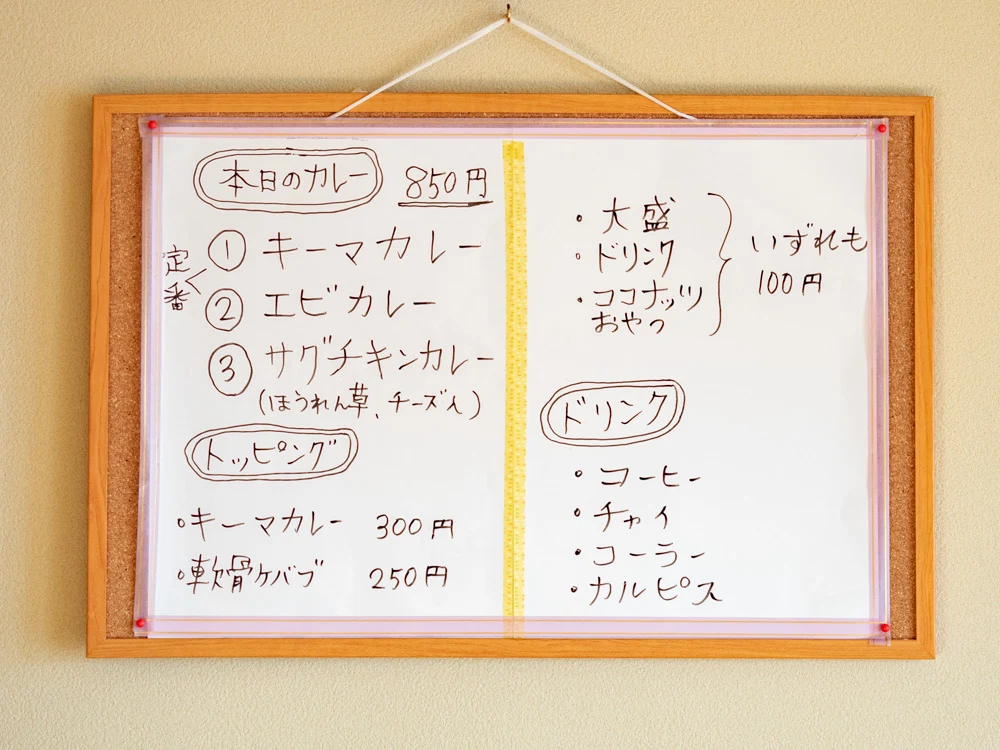 本日のカレー 850円
定番
① キーマカレー
② エビカレー
③ サグチキンカレー
(ほうれん草、チーズ入)
トッピング
・キーマカレー 300円
・軟骨ケバブ 250円
・大盛
・ドリンク
・ココナッツ
おやつ
いずれも
100円
ドリンク
・コーヒー
・チャイ
・コーラー
・カルピス